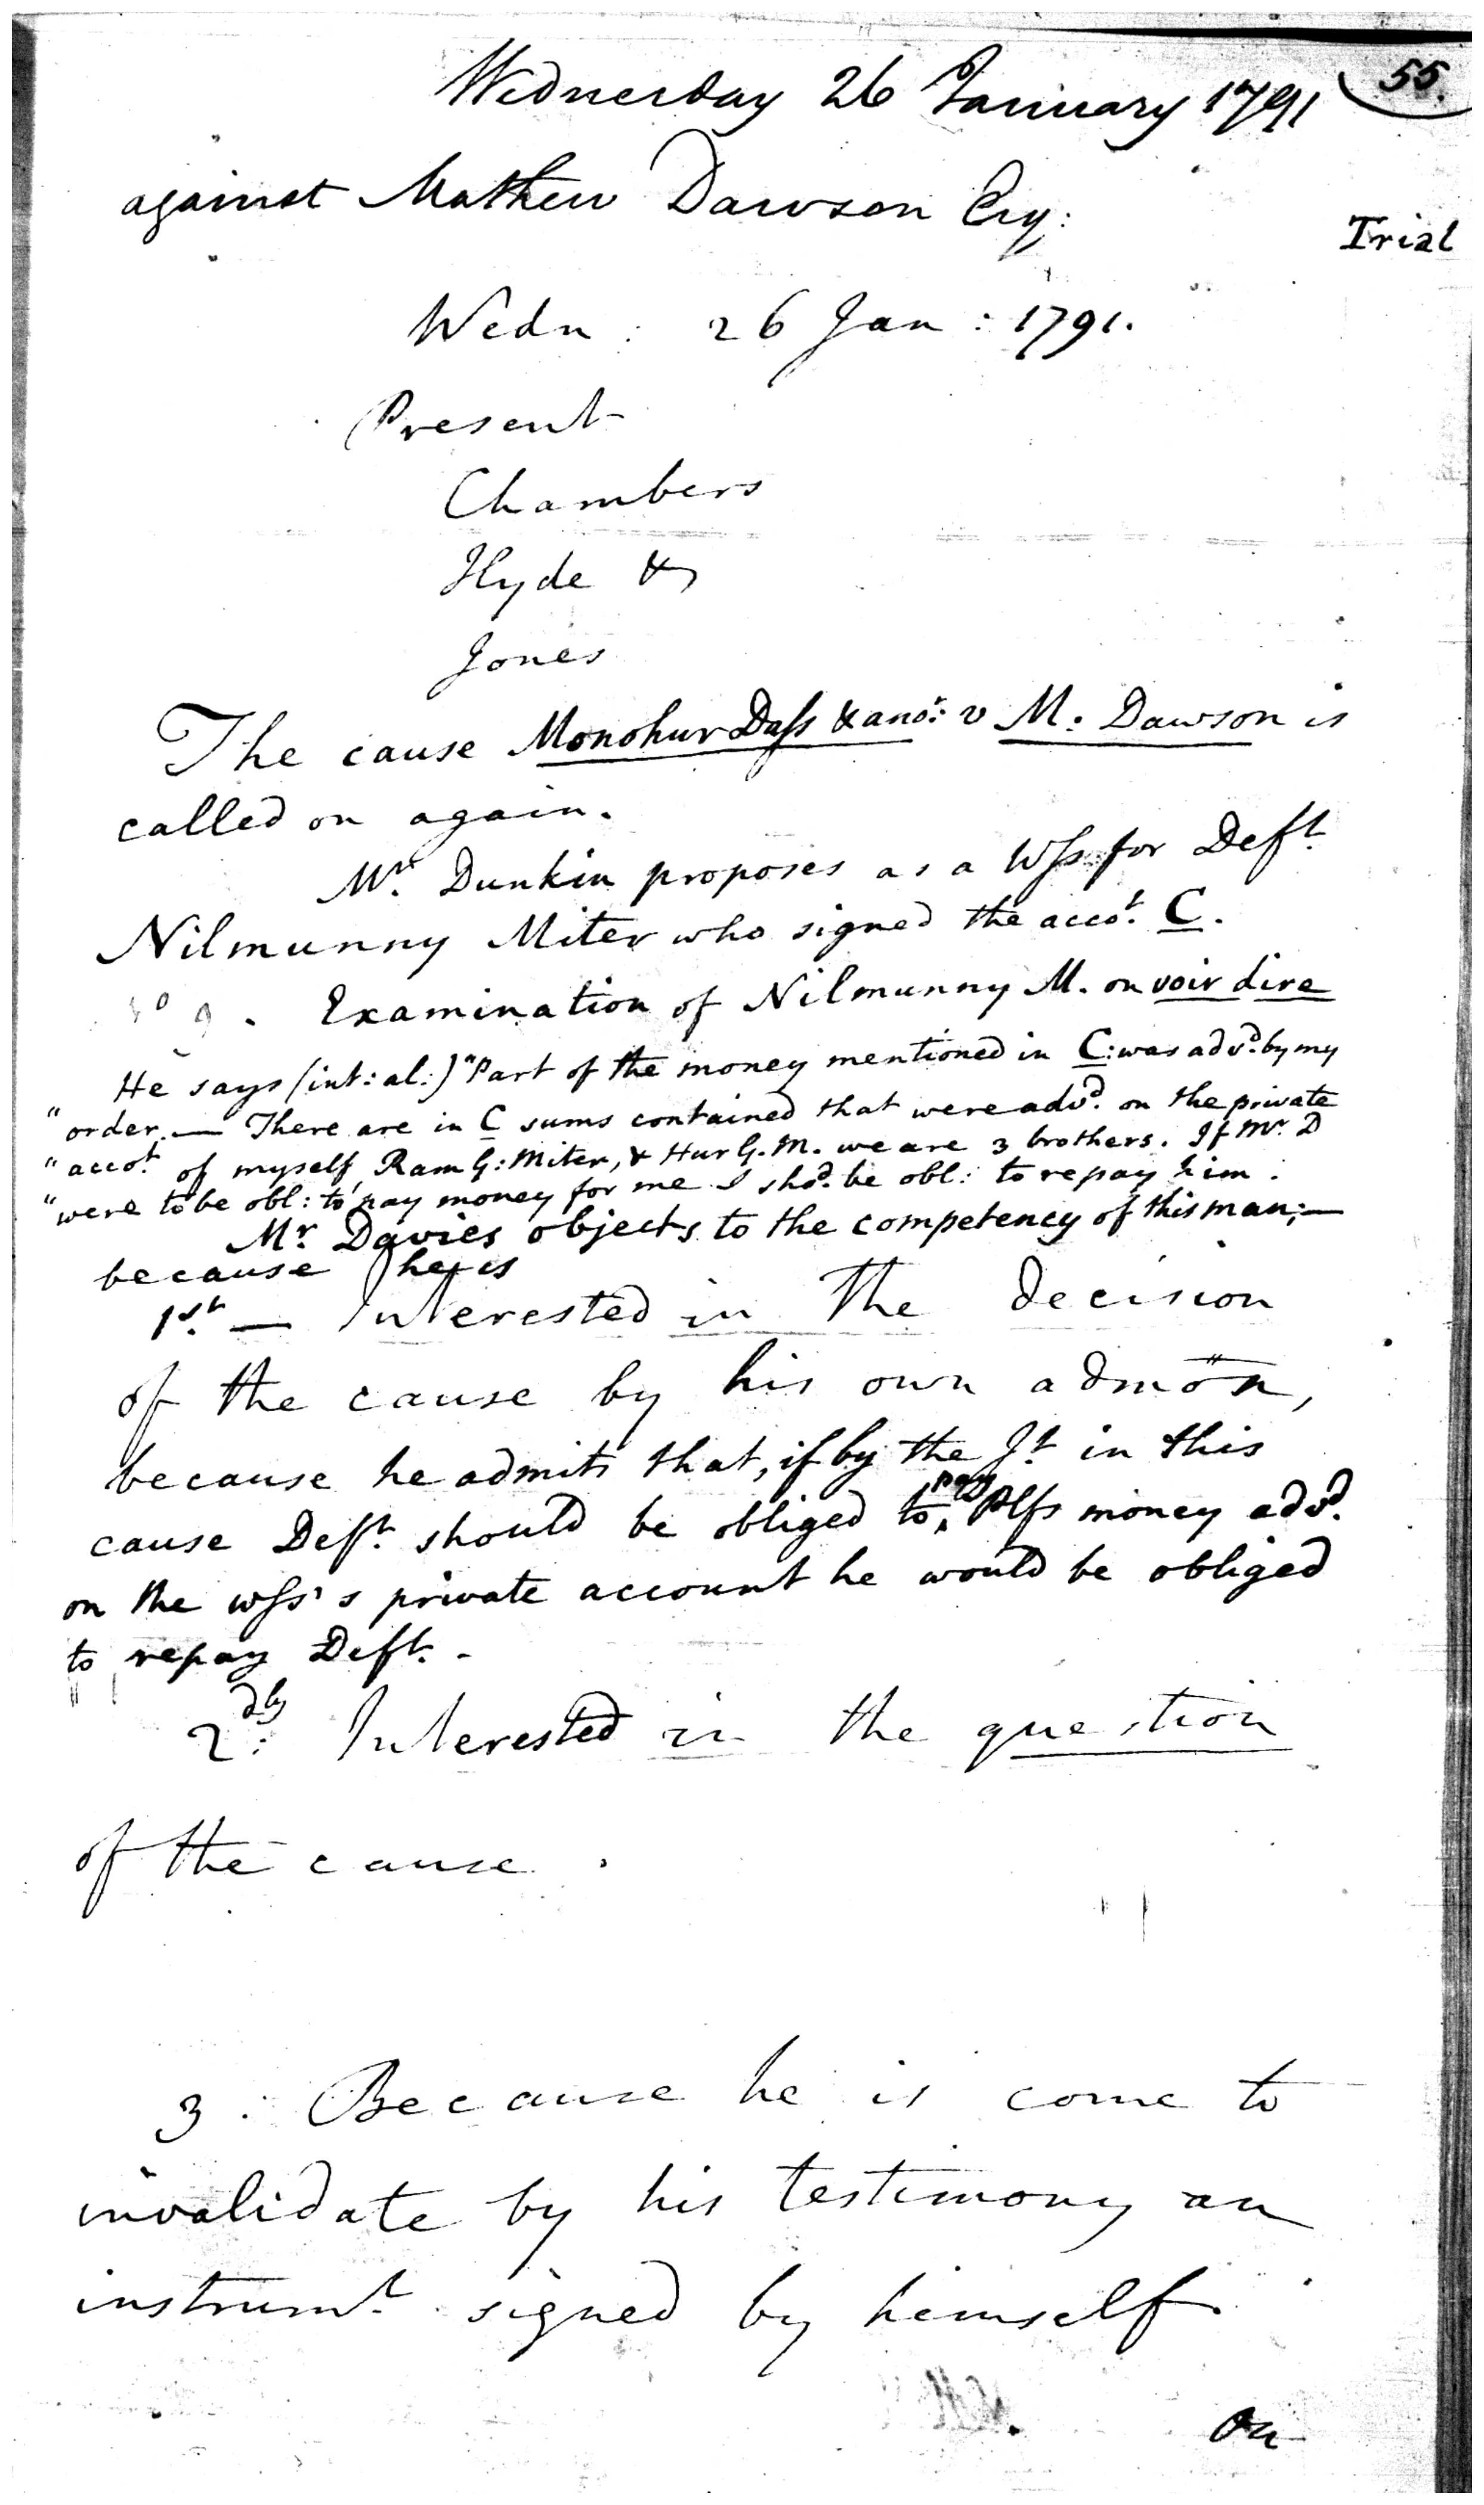 Wednesday 26 January 1791
55.
against Mathew Dawson Esq:
Trial
Wedn: 26 Jan: 1791.
Present
Chambers
Hyde &
Jones
The cause Monohur Dass & anor: v M. Dawson is
called on again.
Mr. Dunkin proposes as a Wss for Deft.
Nilmunny Miter who signed the accot. C.
Examination of Nilmunny M. on voir dire
He says (int: al:) "Part of the money mentioned in C: was advd. by my
" order. — There are in C sums contained that were advd. on the private
" accot. of myself, Ram G: Miter, & Hur G. M. we are 3 brothers. If Mr. D
" were to be obl: to pay money for me I shod. be obl: to repay him.
Mr. Davies objects to the competency of this man; —
because he is
1st. — Interested in the decision
of the cause by his own admōn,
because he admits that, if by the Jt. in this
cause Deft. should be obliged to pay Plfs money advd.
on the wss's private account he would be obliged
to repay Deft. -
2dly: Interested in the question
of the cause.
3. Because he is come to
invalidate by his testimony an
instrumt. signed by himself.
On